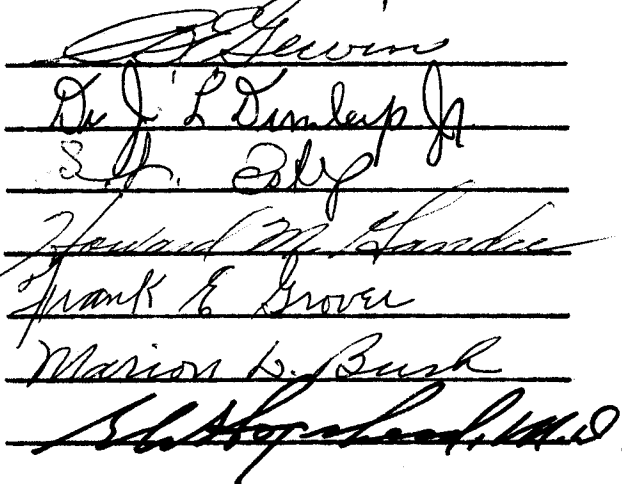 Gewin
Dr J L Dunlap Jr
S. H. Esty
Howard M
Frank E Grover
Marion D. Bush
M.D